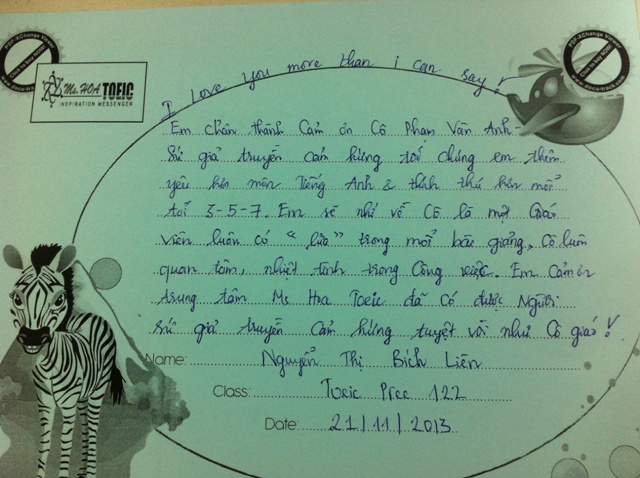 PDF-XChange Viewer
Click to buy NOW!
www.docu-track.com
PDF-XChange Viewer
Click to buy NOW!
www.docu-track.com
Ms. HOA TOEIC
INSPIRATION MESSENGER
I love you more than i can say!
Em chân thành cảm ơn Cô Phan Vân Anh -
Sứ giả truyền cảm hứng tới chúng em thêm
yêu hơn môn Tiếng Anh & thích thú hơn mỗi
tối 3-5-7. Em sẽ nhớ về Cô là một Giáo
viên luôn có "lửa" trong mỗi bài giảng, Cô luôn
quan tâm, nhiệt tình trong Công việc. Em Cảm ơn
trung tâm Ms Hoa Toeic đã có được Người
sứ giả truyền cảm hứng tuyệt vời như Cô giáo!
Name: Nguyễn Thị Bích Liên
Class: Toeic Pree 122
Date: 21/11/2013